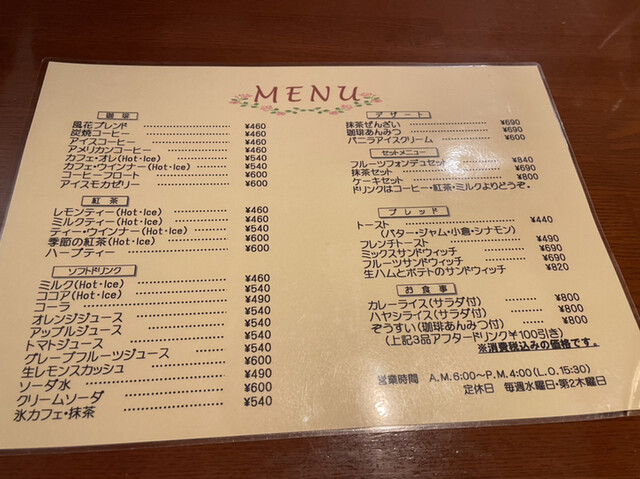 MENU
珈琲
風花ブレンド ¥460
炭焼コーヒー ¥460
アイスコーヒー ¥460
アメリカンコーヒー ¥460
カフェ・オレ(Hot・Ice) ¥540
カフェ・ウインナー(Hot・Ice) ¥540
コーヒーフロート ¥600
アイスモカゼリー ¥600
紅茶
レモンティー(Hot・Ice) ¥460
ミルクティー(Hot・Ice) ¥460
ティー・ウインナー(Hot・Ice) ¥540
季節の紅茶(Hot・Ice) ¥600
ハーブティー ¥600
ソフトドリンク
ミルク(Hot・Ice) ¥460
ココア(Hot・Ice) ¥540
コーラ ¥490
オレンジジュース ¥540
アップルジュース ¥540
トマトジュース ¥540
グレープフルーツジュース ¥540
生レモンスカッシュ ¥600
ソーダ水 ¥490
クリームソーダ ¥600
氷カフェ・抹茶 ¥540
デザート
抹茶ぜんざい ¥690
珈琲あんみつ ¥690
バニラアイスクリーム ¥600
セットメニュー
フルーツフォンデュセット ¥840
抹茶セット ¥690
ケーキセット ¥800
ドリンクはコーヒー・紅茶・ミルクよりどうぞ。
ブレッド
トースト ¥440
(バター・ジャム・小倉・シナモン)
フレンチトースト ¥490
ミックスサンドウィッチ ¥690
フルーツサンドウィッチ ¥690
生ハムとポテトのサンドウィッチ ¥820
お食事
カレーライス(サラダ付) ¥800
ハヤシライス(サラダ付) ¥800
ぞうすい(珈琲あんみつ付) ¥800
(上記3品アフタードリンク¥100引き)
※消費税込みの価格です。
営業時間 A.M.6:00～P.M.4:00(L.O.15:30)
定休日 毎週水曜日・第2木曜日